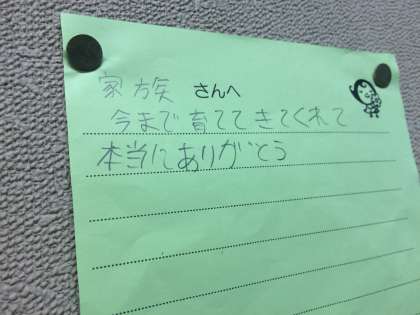 家族 さんへ
今まで育ててきてくれて
本当にありがとう